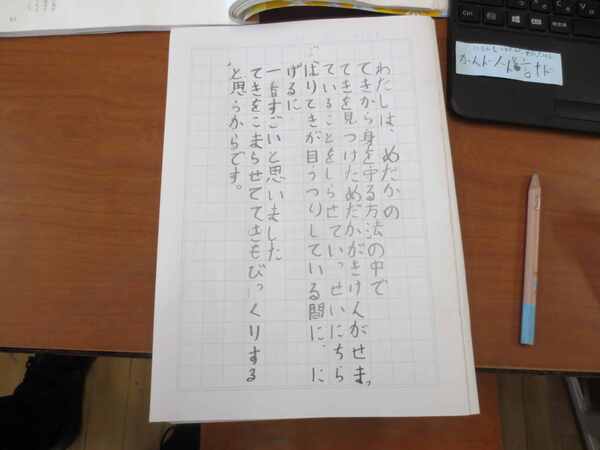 わたしは、めだかの
てきから身を守る方法の中で
てきを見つけためだかがきけんがせまっ
ていることをしらせていっせいにちら
ばりてきが目うつりしている間に、に
げるに
一番すごいと思いました
てきをこまらせててきもびっくりする
と思うからです。